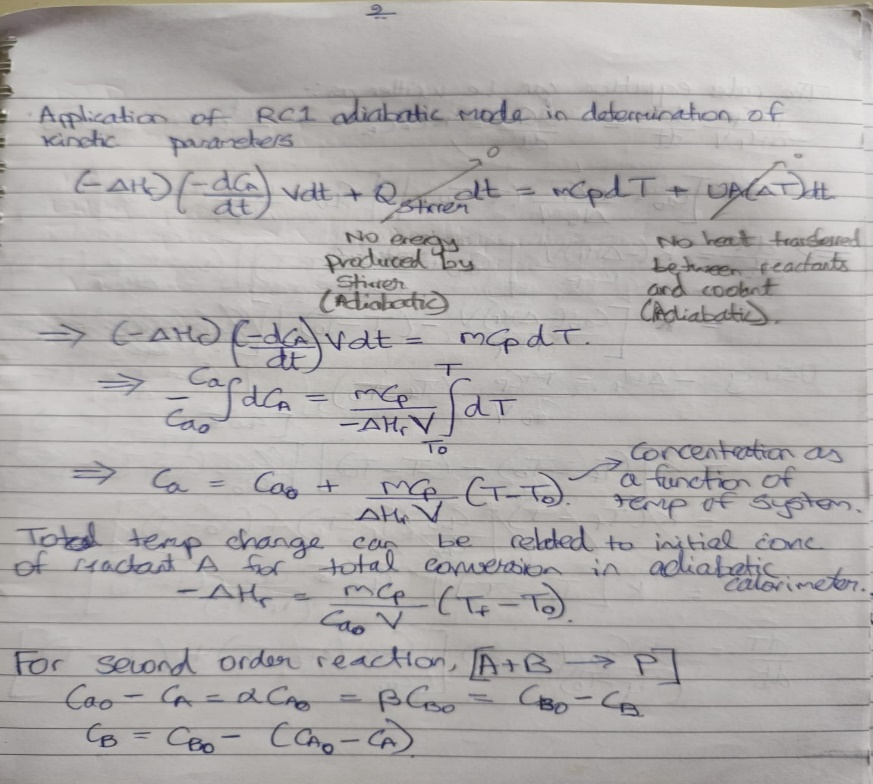 2
Application of RC1 adiabatic mode in determination of
kinetic parameters
(-ΔHr) (-dCA/dt) Vdt + Q stirrer dt = mCpdT + UA(ΔT)dt
→ 0 → 0
No energy produced by Stirrer (Adiabatic)
No heat transferred between reactants and coolant (Adiabatic).
⇒ (-ΔHr) (-dCA/dt) Vdt = mCp dT.
⇒ - Ca0∫Ca dCA = mCp/(-ΔHr V) T0∫T dT
⇒ Ca = Ca0 + mCp/(ΔHr V) (T-T0). → Concentration as a function of temp of system.
Total temp change can be related to initial conc
of reactant A for total conversion in adiabatic
calorimeter.
-ΔHr = mCp/(Ca0 V) (Tf - T0).
For second order reaction, [A+B → P]
Ca0 - CA = αCA0 = βCB0 = CB0 - CB
CB = CB0 - (CA0 - CA)